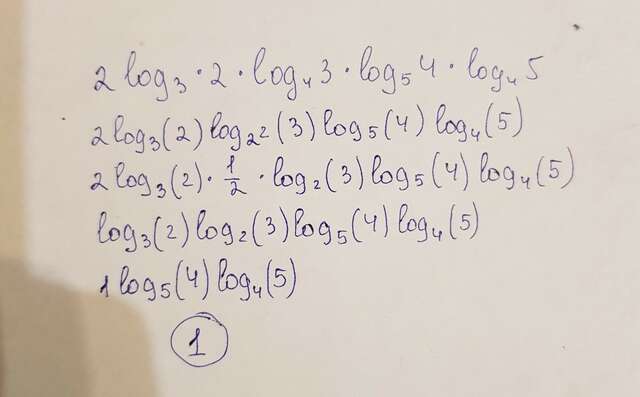 2 log₃ · 2 · log₄ 3 · log₅ 4 · log₄ 5
2 log₃(2) log₂²(3) log₅(4) log₄(5)
2 log₃(2) · 1/2 · log₂(3) log₅(4) log₄(5)
log₃(2) log₂(3) log₅(4) log₄(5)
1 log₅(4) log₄(5)
1